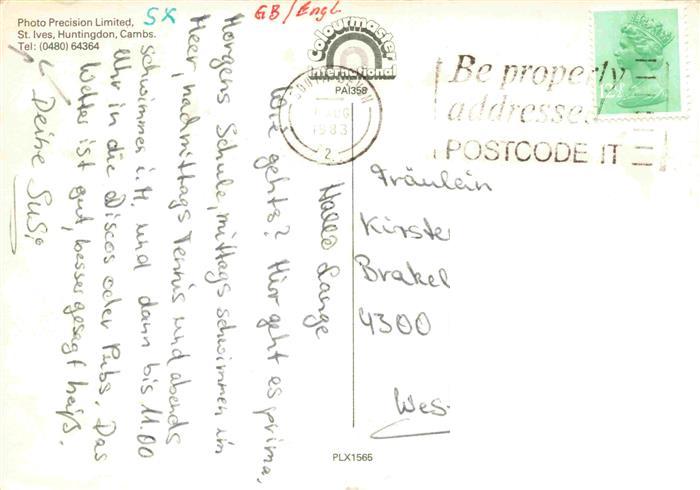 Photo Precision Limited,
St. Ives, Huntingdon, Cambs.
Tel: (0480) 64364
SX
GB/Engl
Colourmaster
International
PAI358
AUG
1983
2
Be properly
addressed
POSTCODE IT
Hallo Lange
Wie gehts? Hier geht es prima.
Morgens Schule, mittags schwimmen im
Meer, nachmittags Tennis und abends
schwimmen i.H. und dann bis 11.00
Uhr in die Discos oder Pubs. Das
Wetter ist gut, besser gesagt heiß.
Deine Susi
Fräulein
Kirste
Brakel
4300
Wes-
PLX1565